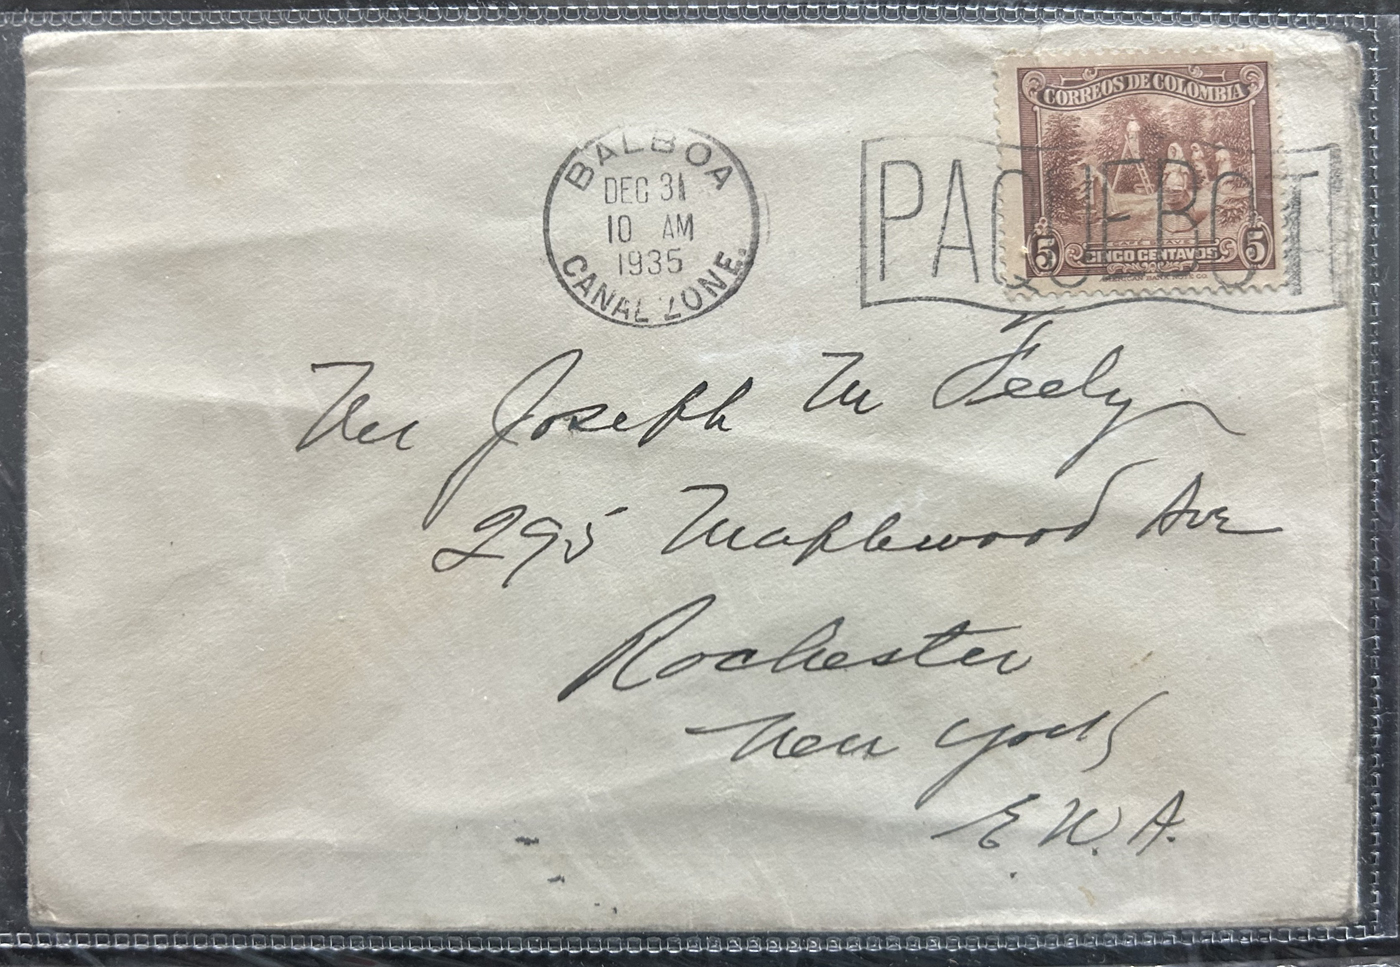 CORREOS DE COLOMBIA
5 CINCO CENTAVOS 5
BALBOA
DEC 31
10 AM
1935
CANAL ZONE.
PAQUEBOT
Mr Joseph M Feely
295 Maplewood Ave
Rochester
New York